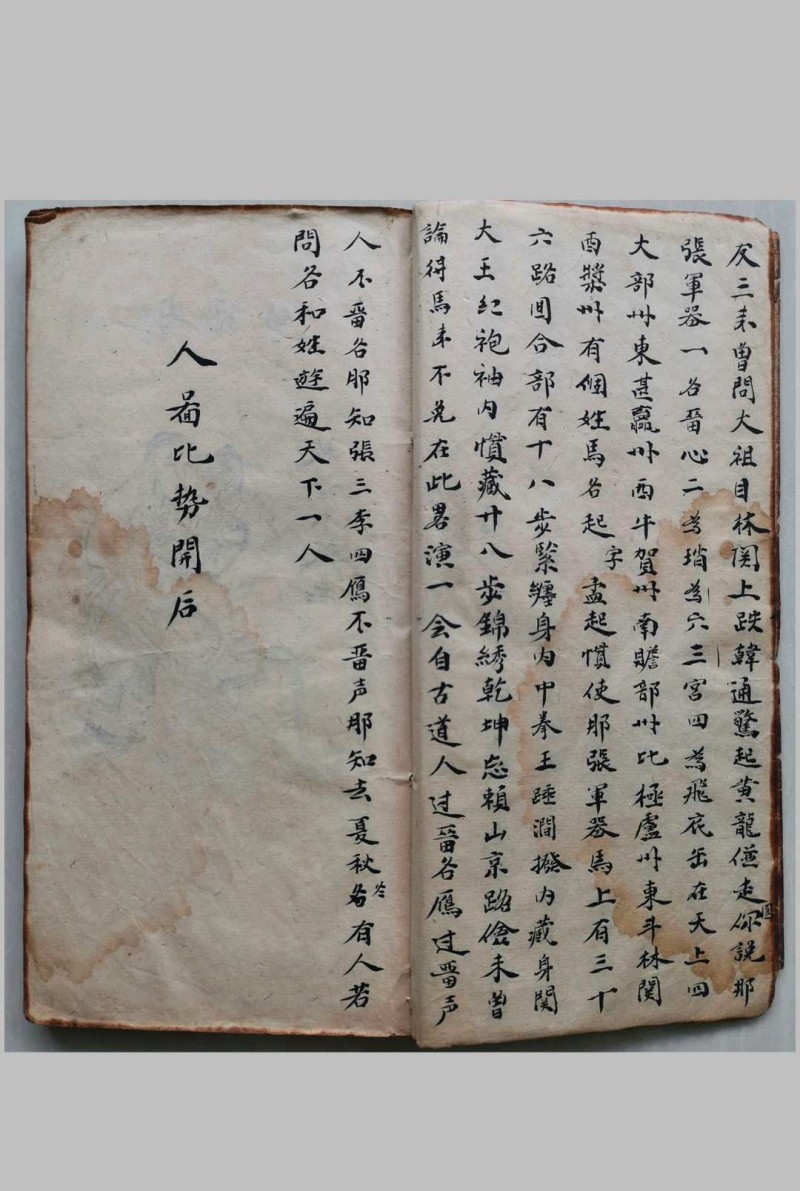 反三未曾問大祖目林関上跌韓通驚起黄龍僊走你説那
張軍器一名畨心二為捎為六三宮四為飛庇缶在天上四
大部州東甚羸州西牛賀州南贍部州比極盧州東斗林関
酉漿州有個姓馬名起字孟起慣使那張軍器馬上有三十
六路囬合部有十八步緊纏身内中拳王踵澗撥内藏身関
大王紅袍袖内慣藏廿八步錦綉乾坤忘頼山京路傖未曾
論得馬来不免在此畧演一会自古道人过畨名鴈过畨声
人不畨名耶知張三李四鴈不畨声耶知去夏秋冬有人若
問名和姓遊遍天下一人
人畨比势開后